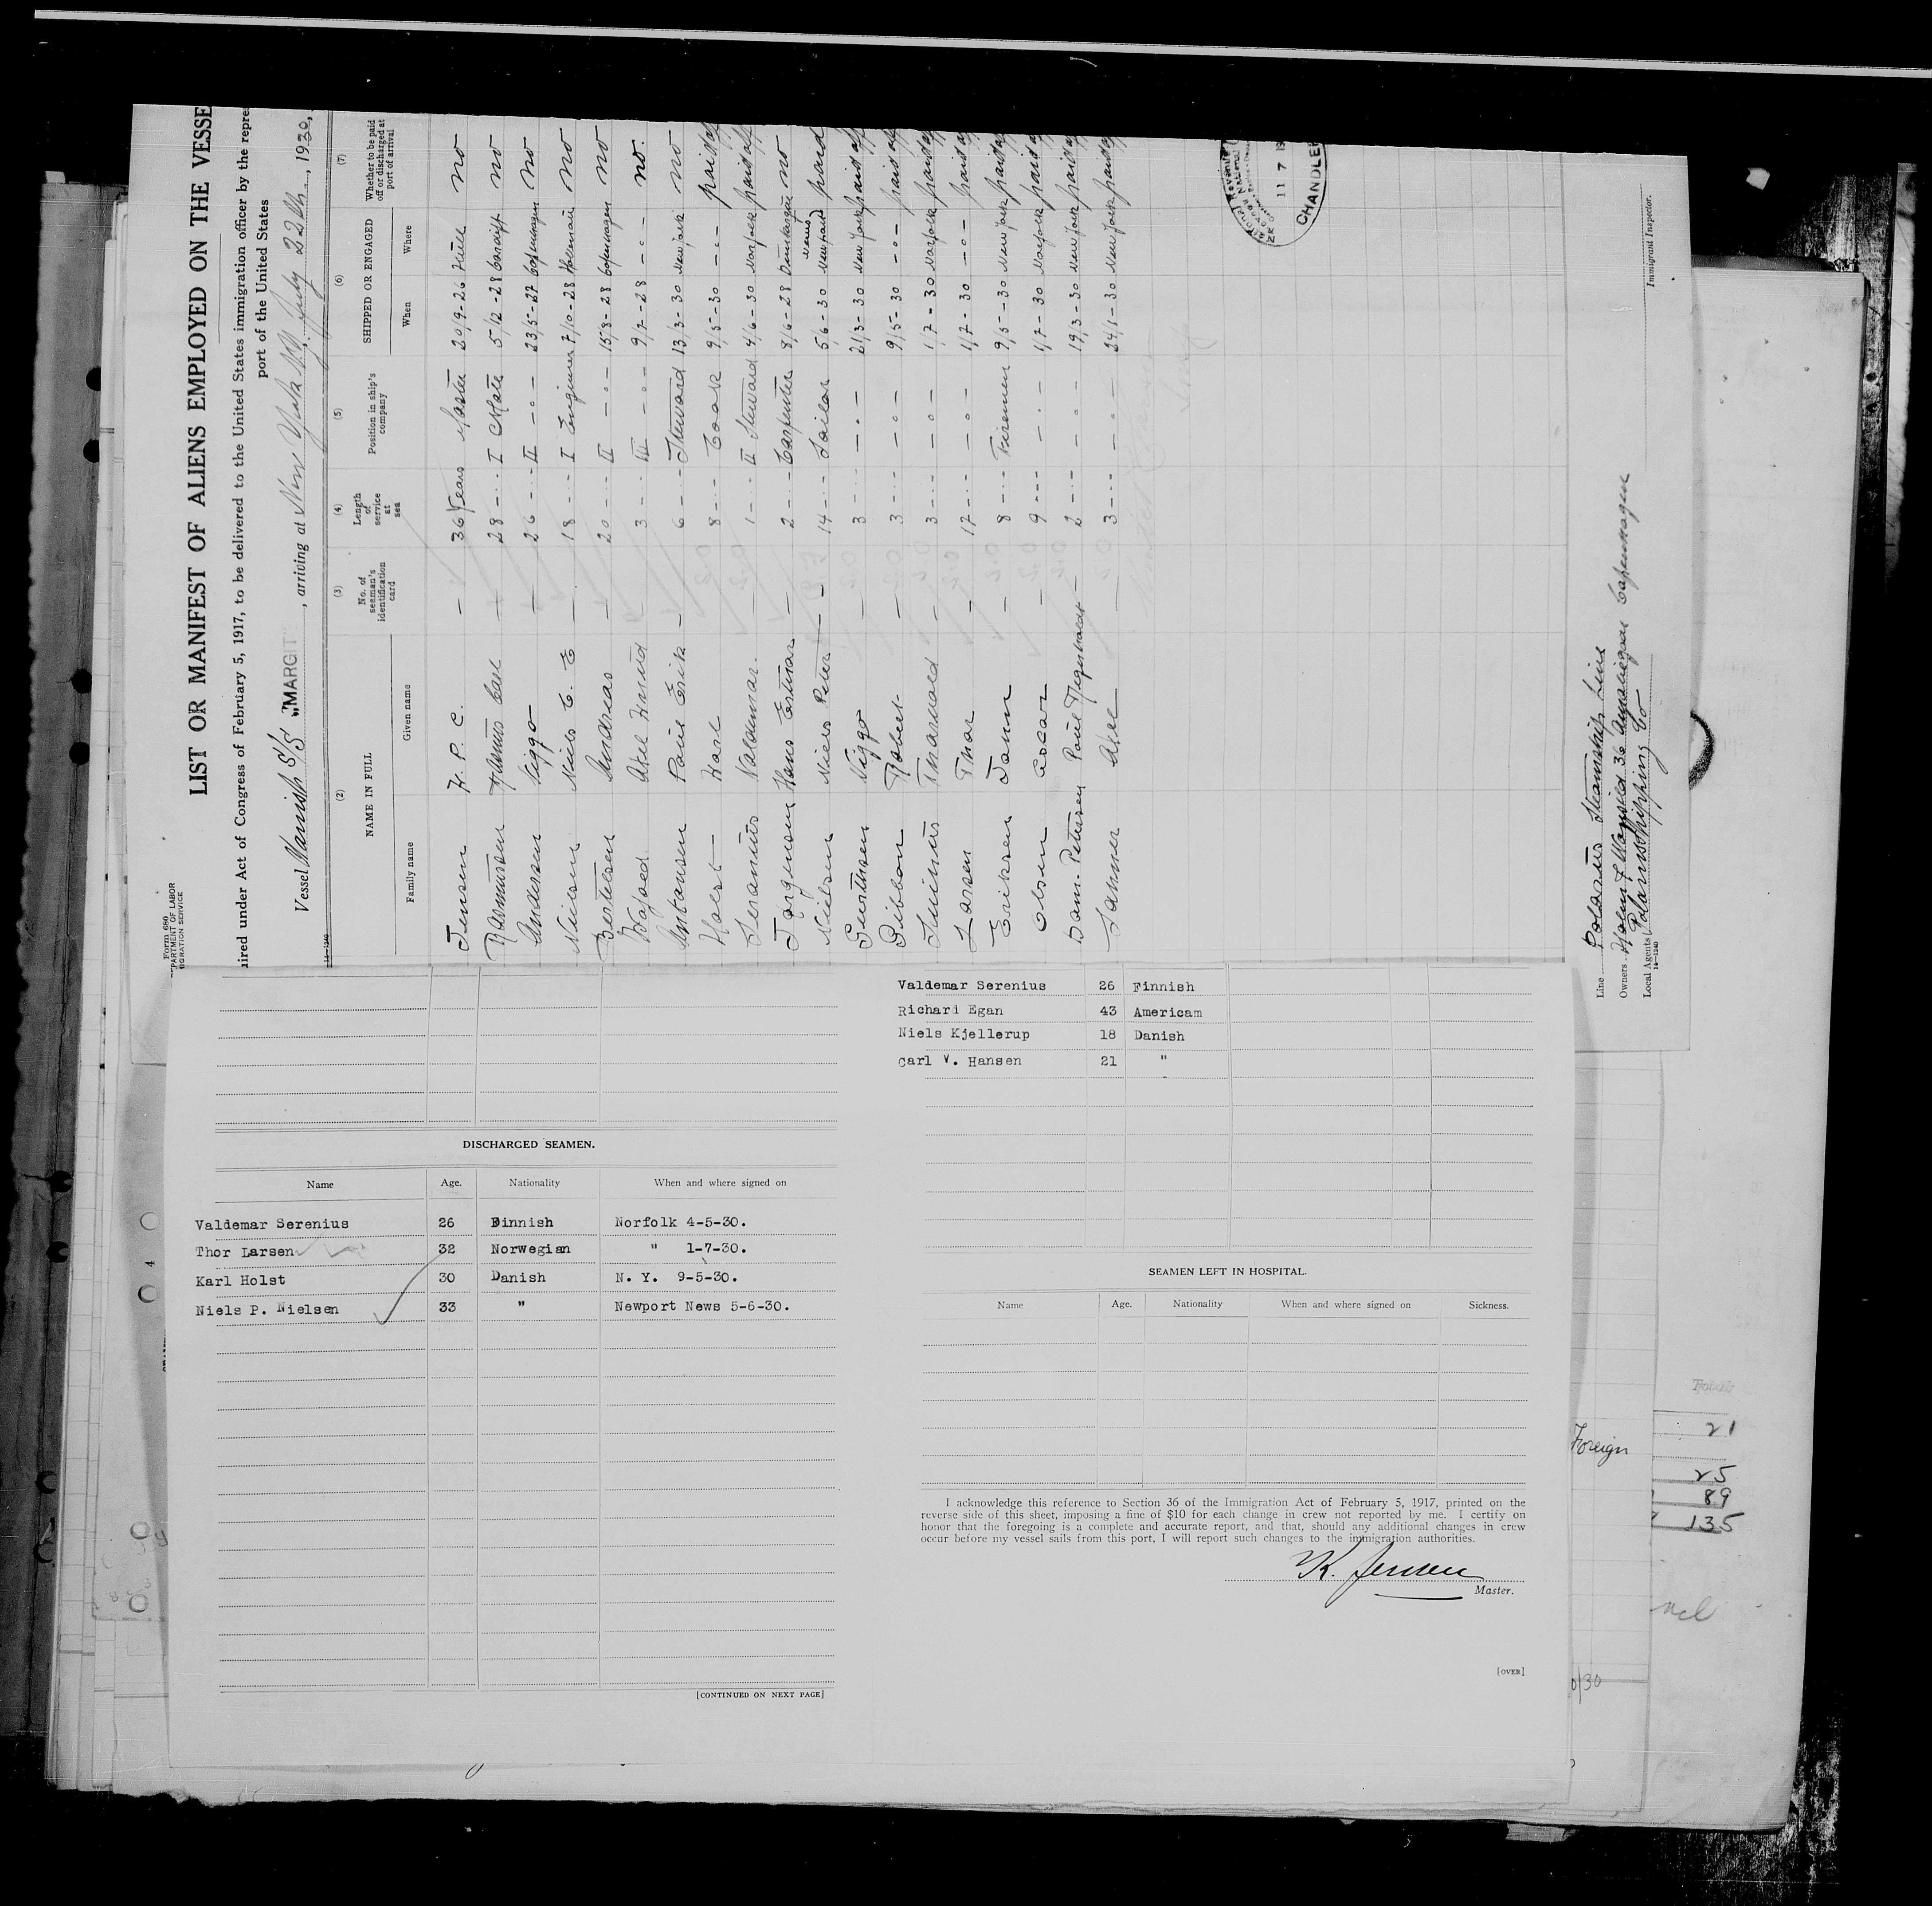 Form 680
LIST OR MANIFEST OF ALIENS EMPLOYED ON THE VESSE
ired under Act of Congress of February 5, 1917, to be delivered to the United States immigration officer by the repre
port of the United States
Vessel Danish S/S "MARGIT", arriving at New York N.Y. July 22th, 1930,
(2) (3) (4) (5) (6) (7)
NAME IN FULL
Family name Given name
No. of seaman's identification card
Length of service at sea
Position in ship's company
SHIPPED OR ENGAGED
When Where
Whether to be paid off or discharged at port of arrival
Jensen K. P. C. — 36 Years Master 20/9-26 Hull no
Rasmussen Hannes Carl — 28 -"- I Mate 5/12-28 Cardiff no
Andersen Viggo — 26 -"- II -"- 23/5-27 Copenhagen no
Nielsen Niels C. E — 18 -"- I Engineer 7/10-28 no
Bertelsen Andreas — 20 -"- II -"- 15/8-28 Copenhagen no
Axel Hmud 3 -"- III -"- 9/7-28 -"- no.
Antonsen Poul Erik — 6 -"- Steward 13/3-30 New York no
Holst Karl 8 -"- Cook 9/5-30 -"- paid off
Serenius Valdemar — 1 -"- II Steward 4/6-30 Norfolk paid off
Jørgensen Hans Estmar — 2 -"- Carpenter 8/6-28 no
Nielsen Niels Peter — 14 -"- Sailor 5/6-30 Newport News paid
Viggo — 3 -"- -"- 21/3-30 New York paid off
Gibbon Robert — 3 -"- -"- 9/5-30 -"- paid off
Thorvald — 3 -"- -"- 1/7-30 Norfolk paid off
Larsen Thor — 17 -"- -"- 1/7-30 -"- paid off
Eriksen Johan — 8 -"- Firemen 9/5-30 New York paid off
Olsen Oscar — 9 -"- -"- 1/7-30 Norfolk paid off
Dam-Petersen Poul — 2 -"- -"- 19/3-30 New York paid off
Sanner Axel 3 -"- -"- 24/1-30 New York paid off
11 7 19
CHANDLE
Line Polarus Steamship Line
Owners Holm & Wonsild 36 Amaliegade Copenhagen
Local Agents Polarus Shipping Co
Immigrant Inspector.
DISCHARGED SEAMEN.
Name Age. Nationality When and where signed on
Valdemar Serenius 26 Finnish Norfolk 4-5-30.
Thor Larsen 32 Norwegian " 1-7-30.
Karl Holst 30 Danish N. Y. 9-5-30.
Niels P. Nielsen 33 " Newport News 5-6-30.
[CONTINUED ON NEXT PAGE]
Valdemar Serenius 26 Finnish
Richard Egan 43 Americam
Niels Kjellerup 18 Danish
Carl V. Hansen 21 "
SEAMEN LEFT IN HOSPITAL.
Name Age. Nationality When and where signed on Sickness.
I acknowledge this reference to Section 36 of the Immigration Act of February 5, 1917, printed on the
reverse side of this sheet, imposing a fine of $10 for each change in crew not reported by me. I certify on
honor that the foregoing is a complete and accurate report, and that, should any additional changes in crew
occur before my vessel sails from this port, I will report such changes to the immigration authorities.
K. Jensen
Master.
[OVER]
Foreign
21
25
89
135